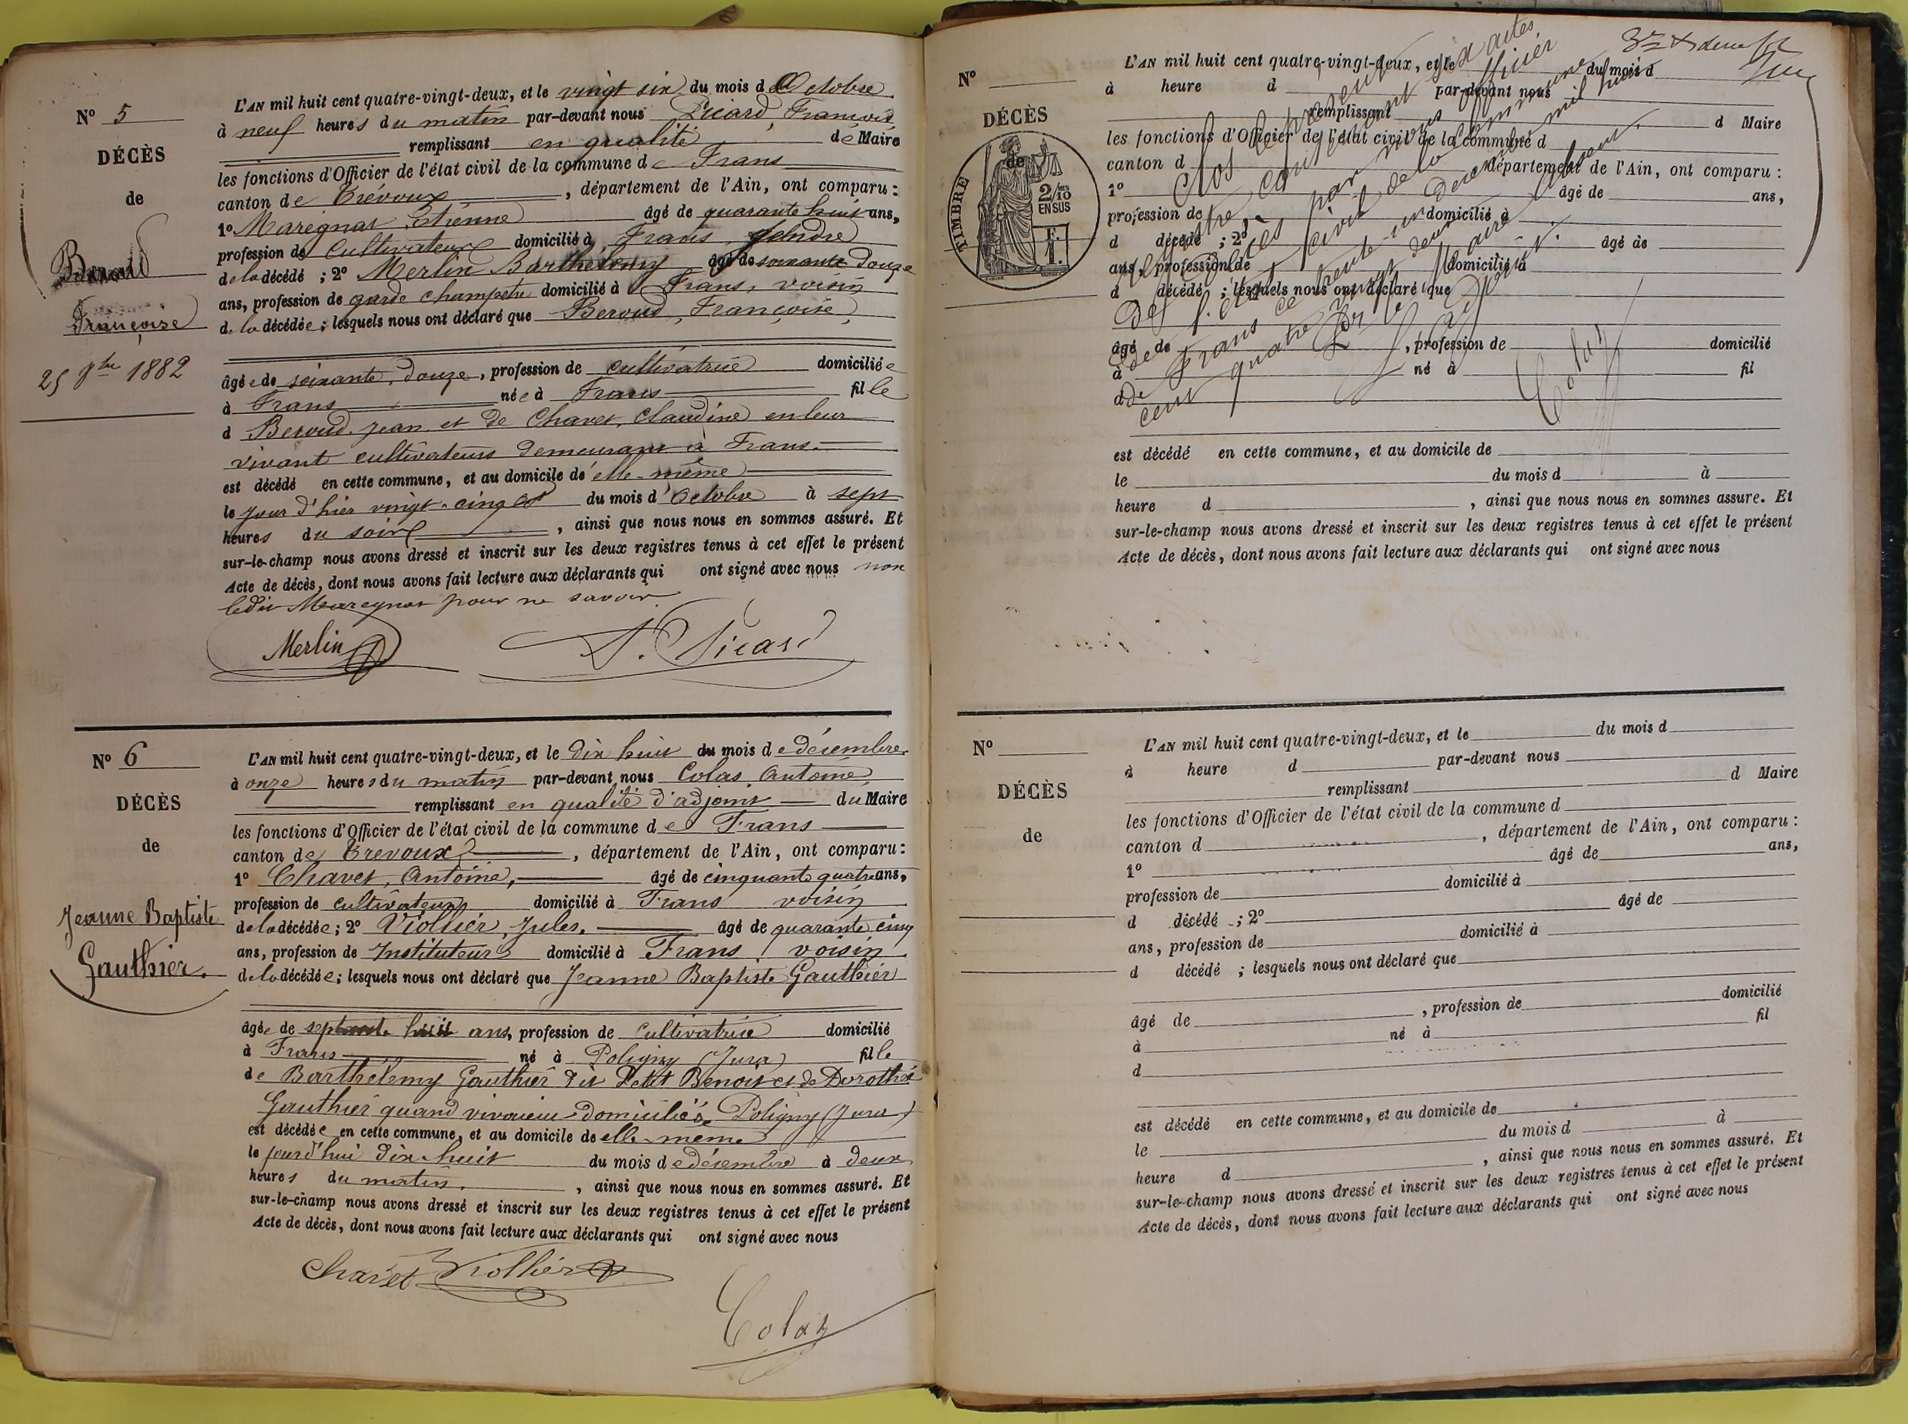 N° 5
DÉCÈS
de
Beroud
Françoise
25 8bre 1882
L'AN mil huit cent quatre-vingt-deux, et le vingt six du mois d Octobre
à neuf heures du matin par-devant nous Picard, François
remplissant en qualité de Maire
les fonctions d'Officier de l'état civil de la commune de Frans
canton de Trévoux, département de l'Ain, ont comparu:
1° Maregnat, Etienne âgé de quarante huit ans,
profession de Cultivateur domicilié à Frans, gendre
de la décédé; 2° Merlin Barthelemy âgé de soixante douze
ans, profession de garde champetre domicilié à Frans, voisin
de la décédée; lesquels nous ont déclaré que Beroud, Françoise,
âgée de soixante douze, profession de cultivatrice domiciliée
à Frans née à Frans fille
d Beroud Jean et de Chavet, Claudine en leur
vivant cultivateurs demeurant à Frans.
est décédé en cette commune, et au domicile de elle-même
le jour d'hier vingt-cinq du mois d'Octobre à sept
heures du soir, ainsi que nous nous en sommes assuré. Et
sur-le-champ nous avons dressé et inscrit sur les deux registres tenus à cet effet le présent
Acte de décès, dont nous avons fait lecture aux déclarants qui ont signé avec nous non
ledit Maregnat pour ne savoir.
Merlin F. Picard
N° 6
DÉCÈS
de
Jeanne Baptiste
Gauthier.
L'AN mil huit cent quatre-vingt-deux, et le dix huit du mois de décembre
à onze heures du matin par-devant nous Colas, Antoine,
remplissant en qualité d'adjoint du Maire
les fonctions d'Officier de l'état civil de la commune de Frans
canton de Trevoux, département de l'Ain, ont comparu:
1° Chavet, Antoine, âgé de cinquante quatre ans,
profession de cultivateur domicilié à Frans voisin
de la décédée; 2° Viollier, Jules. âgé de quarante cinq
ans, profession de Instituteur domicilié à Frans, voisin
de la décédée; lesquels nous ont déclaré que Jeanne Baptiste Gauthier
âgée de septante huit ans, profession de cultivatrice domicilié
à Frans né à Poligny (Jura) fille
de Barthélemy Gauthier dit Petit Benoit et de Dorothée
Gauthier quand vivaient domiciliés Poligny (Jura)
est décédée en cette commune, et au domicile de elle-même
le jourd'hui dix-huit du mois de décembre à deux
heures du matin, ainsi que nous nous en sommes assuré. Et
sur-le-champ nous avons dressé et inscrit sur les deux registres tenus à cet effet le présent
Acte de décès, dont nous avons fait lecture aux déclarants qui ont signé avec nous
Chavet Viollier
Colas
N°
DÉCÈS
de
TIMBRE
2/10 EN SUS
L'AN mil huit cent quatre-vingt-deux, et le du mois d
à heure d par-devant nous
remplissant d Maire
les fonctions d'Officier de l'état civil de la commune d
canton d département de l'Ain, ont comparu:
1° âgé de ans,
profession de domicilié à
d décédé; 2° âgé de
ans, profession de domicilié à
d décédé; lesquels nous ont déclaré que
âgé de, profession de domicilié
à né à fil
d
est décédé en cette commune, et au domicile de
le du mois d à
heure d, ainsi que nous nous en sommes assuré. Et
sur-le-champ nous avons dressé et inscrit sur les deux registres tenus à cet effet le présent
Acte de décès, dont nous avons fait lecture aux déclarants qui ont signé avec nous
Clos le présent
registre, contenant six actes
de décès par nous officier
de l'état civil de la commune
de Frans ce trente-un Decembre mil huit
cent quatre vingt deux
Pr le Maire absent.
L'adjoint.
Colas
N°
DÉCÈS
de
L'AN mil huit cent quatre-vingt-deux, et le du mois d
à heure d par-devant nous
remplissant d Maire
les fonctions d'Officier de l'état civil de la commune d
canton d, département de l'Ain, ont comparu:
1° âgé de ans,
profession de domicilié à
d décédé; 2° âgé de
ans, profession de domicilié à
d décédé; lesquels nous ont déclaré que
âgé de, profession de domicilié
à né à fil
d
est décédé en cette commune, et au domicile de
le du mois d à
heure d, ainsi que nous nous en sommes assuré. Et
sur-le-champ nous avons dressé et inscrit sur les deux registres tenus à cet effet le présent
Acte de décès, dont nous avons fait lecture aux déclarants qui ont signé avec nous